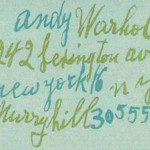 andy Warhol
242 Lexington av
new york 16 n y
Murryhill 30555